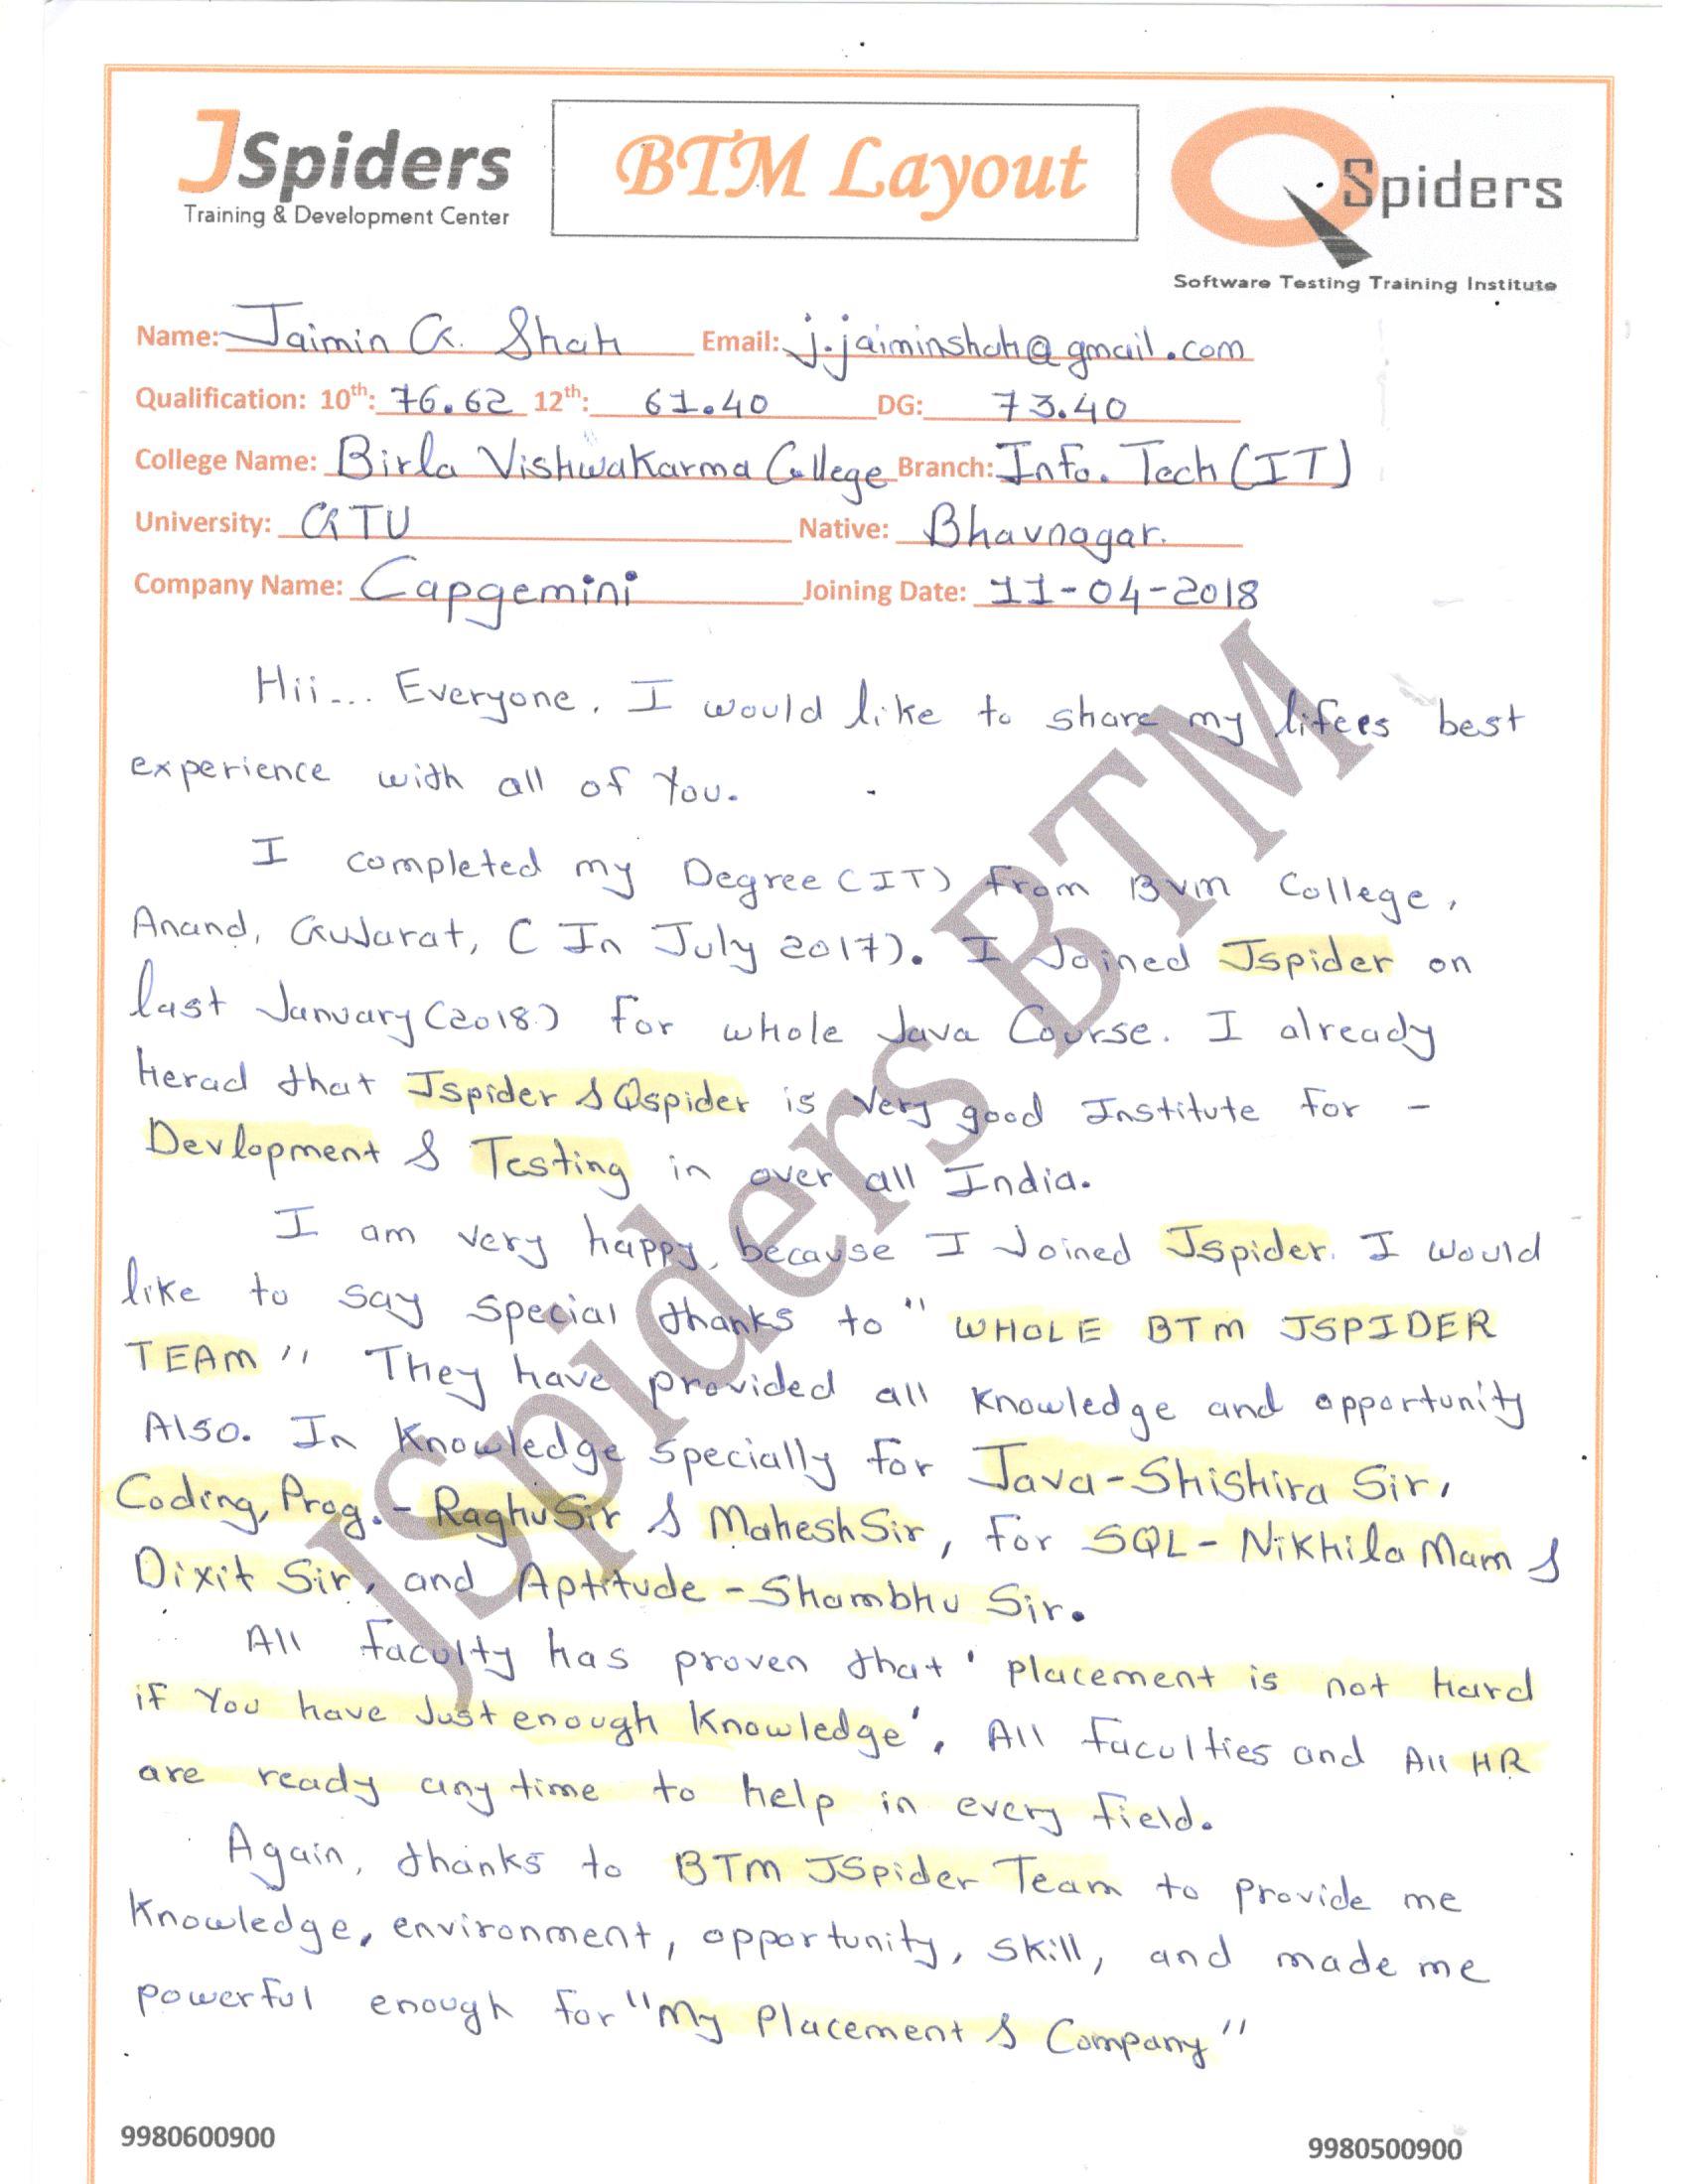 JSpiders
Training & Development Center
BTM Layout
QSpiders
Software Testing Training Institute
Name: Jaimin G. Shah Email: j.jaiminshah@gmail.com
Qualification: 10th: 76.62 12th: 61.40 DG: 73.40
College Name: Birla Vishwakarma College Branch: Info. Tech (IT)
University: GTU Native: Bhavnagar.
Company Name: Capgemini Joining Date: 11-04-2018
Hii... Everyone, I would like to share my lifees best
experience with all of You.
I completed my Degree (IT) from BVM College,
Anand, GuJarat, ( In July 2017). I Joined Jspider on
last January (2018) for whole Java Course. I already
Herad that Jspider & Qspider is very good Institute for -
Devlopment & Testing in over all India.
I am very happy, because I Joined Jspider. I would
like to say special thanks to "WHOLE BTM JSPIDER
TEAM" They have provided all knowledge and opportunity
Also. In Knowledge specially for Java-Shishira Sir,
Coding, Prog.- Raghu Sir & Mahesh Sir, for SQL-Nikhila Mam &
Dixit Sir, and Aptitude-Shambhu Sir.
All faculty has proven that 'placement is not hard
if You have Just enough Knowledge'. All faculties and All HR
are ready any time to help in every field.
Again, thanks to BTM JSpider Team to provide me
Knowledge, environment, opportunity, skill, and made me
powerful enough for "My Placement & Company"
JSpiders BTM
9980600900
9980500900